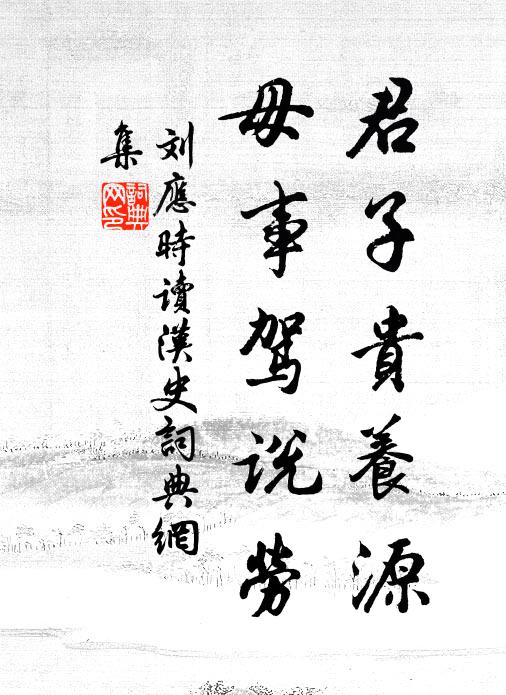 君子貴養源
毋事駕说勞
刘應時讀漢史詞典網
集
詞典網印